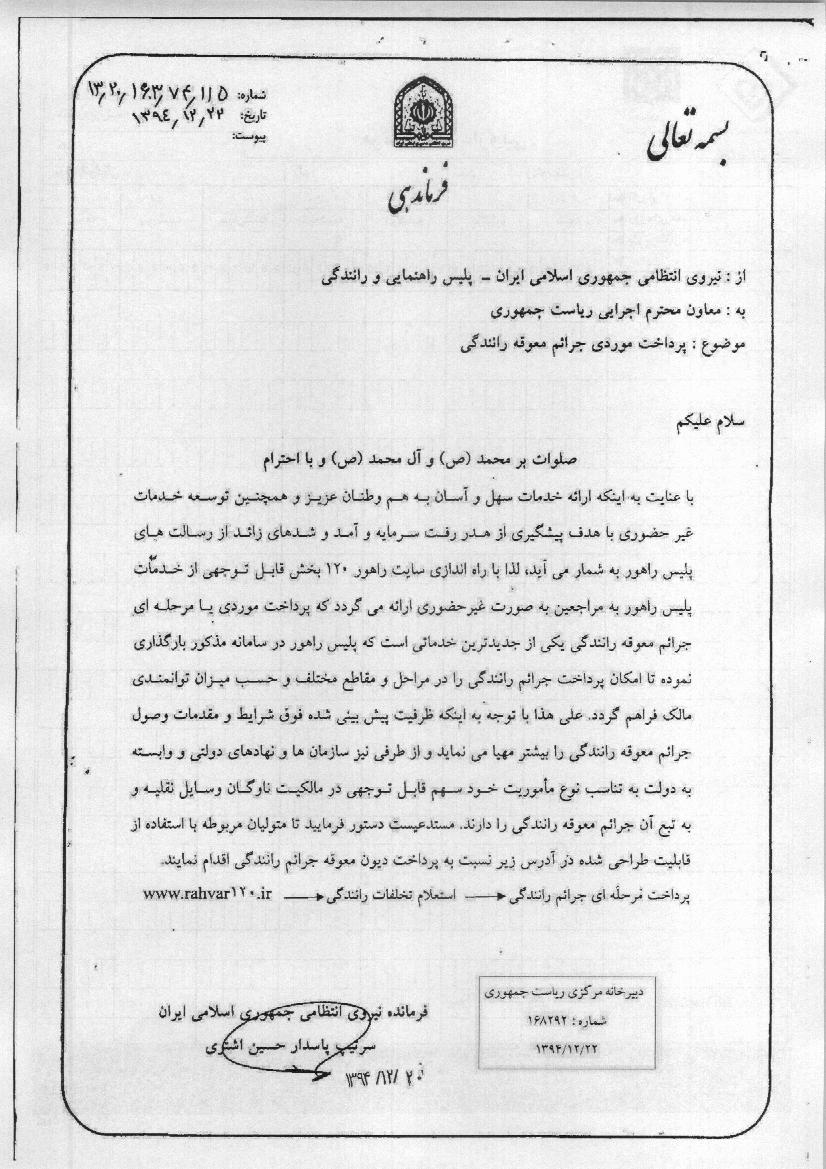 بسمه تعالی
شماره: ۱۳٫۲۰٫۱۶۳٫۷۴٫۱٫۵
تاریخ: ۱۳۹۴٫۱۲٫۲۲
پیوست:
فرماندهی
از : نیروی انتظامی جمهوری اسلامی ایران – پلیس راهنمایی و رانندگی
به : معاون محترم اجرایی ریاست جمهوری
موضوع : پرداخت موردی جرائم معوقه رانندگی
سلام علیکم
صلوات بر محمد (ص) و آل محمد (ص) و با احترام
با عنایت به اینکه ارائه خدمات سهل و آسان به هم وطنان عزیز و همچنین توسعه خدمات
غیر حضوری با هدف پیشگیری از هدر رفت سرمایه و آمد و شدهای زائد از رسالت های
پلیس راهور به شمار می آید، لذا با راه اندازی سایت راهور ۱۲۰ بخش قابل توجهی از خدمات
پلیس راهور به مراجعین به صورت غیرحضوری ارائه می گردد که پرداخت موردی یا مرحله ای
جرائم معوقه رانندگی یکی از جدیدترین خدماتی است که پلیس راهور در سامانه مذکور بارگذاری
نموده تا امکان پرداخت جرائم رانندگی را در مراحل و مقاطع مختلف و حسب میزان توانمندی
مالک فراهم گردد. علی هذا با توجه به اینکه ظرفیت پیش بینی شده فوق شرایط و مقدمات وصول
جرائم معوقه رانندگی را بیشتر مهیا می نماید و از طرفی نیز سازمان ها و نهادهای دولتی و وابسته
به دولت به تناسب نوع مأموریت خود سهم قابل توجهی در مالکیت ناوگان وسایل نقلیه و
به تبع آن جرائم معوقه رانندگی را دارند. مستدعیست دستور فرمایید تا متولیان مربوطه با استفاده از
قابلیت طراحی شده در آدرس زیر نسبت به پرداخت دیون معوقه جرائم رانندگی اقدام نمایند.
پرداخت مرحله ای جرائم رانندگی ← استعلام تخلفات رانندگی ← www.rahvar۱۲۰.ir
دبیرخانه مرکزی ریاست جمهوری
شماره : ۱۶۸۲۹۲
۱۳۹۴/۱۲/۲۲
فرمانده نیروی انتظامی جمهوری اسلامی ایران
سرتیپ پاسدار حسین اشتری
۱۳۹۴/۱۲/۲۰